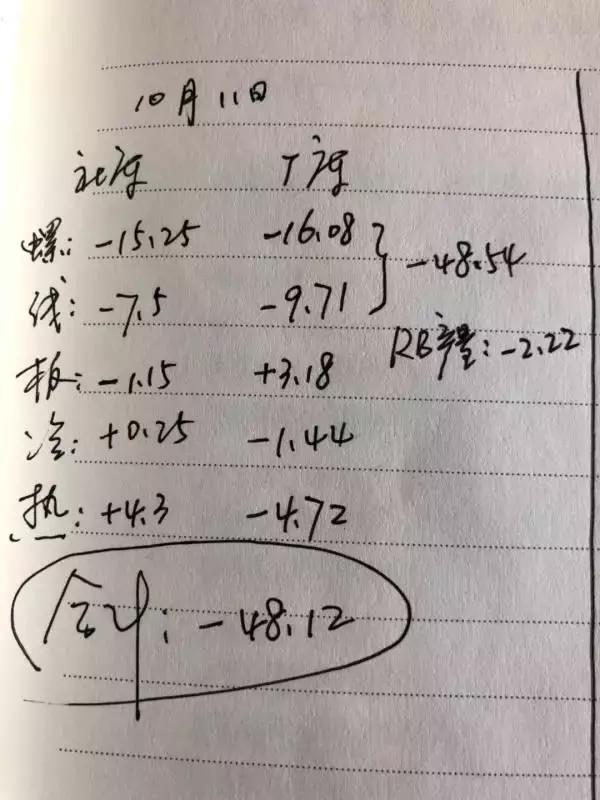 10月11日
社库 厂库
螺: -15.25 -16.08 } -48.54
线: -7.5 -9.71
RB产量: -2.22
板: -1.15 +3.18
冷: +0.25 -1.44
热: +4.3 -4.72
合计: -48.12